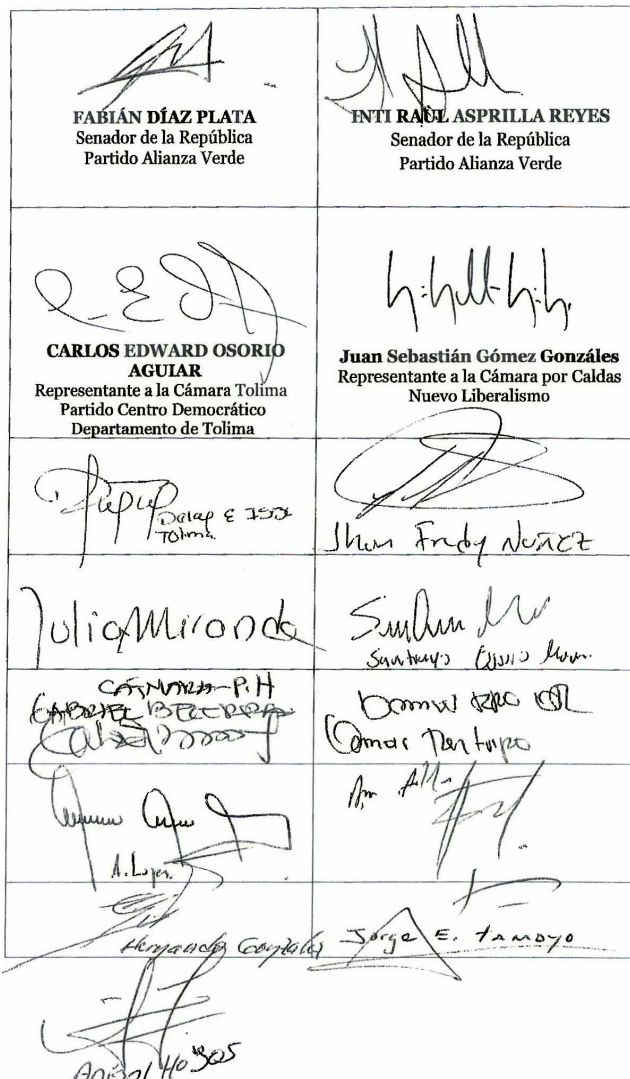 FABIÁN DÍAZ PLATA
Senador de la República
Partido Alianza Verde
INTI RAÚL ASPRILLA REYES
Senador de la República
Partido Alianza Verde
CARLOS EDWARD OSORIO
AGUIAR
Representante a la Cámara Tolima
Partido Centro Democrático
Departamento de Tolima
Juan Sebastián Gómez Gonzáles
Representante a la Cámara por Caldas
Nuevo Liberalismo
Tolima
Jhon Fredy NUÑEZ
Julia Miranda
CÁMARA-P.H
GABRIEL BECERRA
A. Lopez.
Hernando González
Jorge E. TAMAYO
Aníbal HOYOS